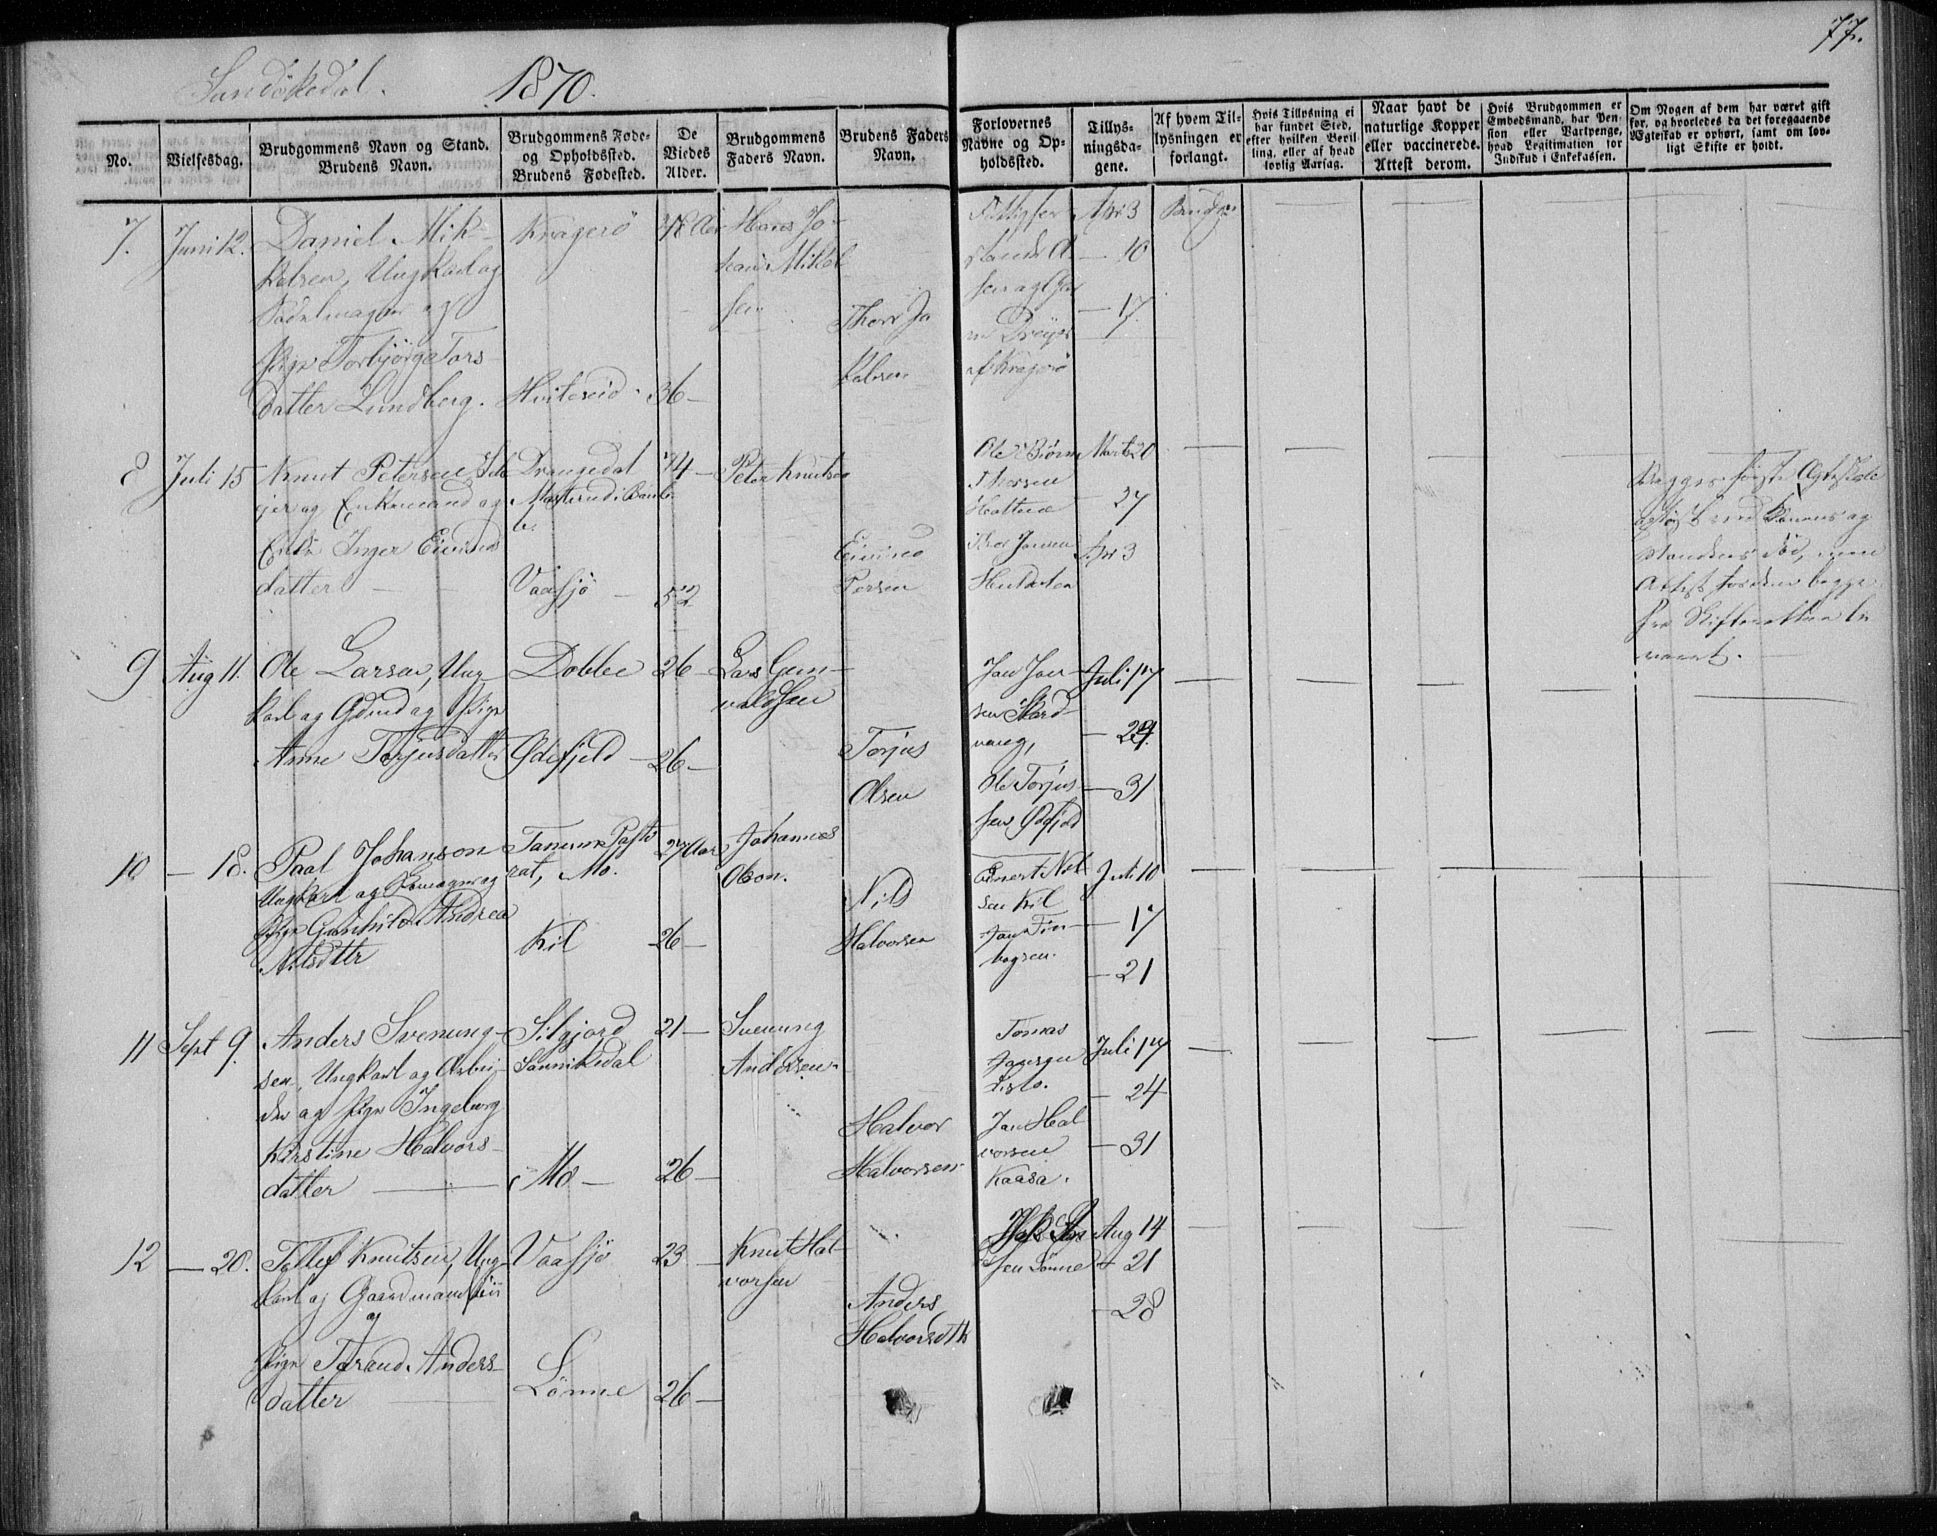 77.
Sandökedal. 1870.
No.
Vielsesdag.
Brudgommens Navn og Stand.
Brudens Navn.
Brudgommens Føde-
og Opholdssted.
Brudens Fødested.
De
Viedes
Alder.
Brudgommens
Faders Navn.
Brudens Faders
Navn.
Forlovernes
Navne og Op-
holdssted.
Tillys-
ningsda-
gene.
Af hvem Til-
lysningen er
forlangt.
Hvis Tillysning ei
har fundet Sted,
efter hvilken Bevil-
ling, eller af hvad
lovlig Aarsag.
Naar havt de
naturlige Kopper
eller vaccinerede.
Attest derom.
Hvis Brudgommen er
Embedsmand, har Pen-
sion eller Vartpenge,
hvad Legitimation for
Indskud i Enkekassen.
Om Nogen af dem har været gift
før, og hvorledes da det foregaaende
Ægteskab er ophørt, samt om lov-
ligt Skifte er holdt.
7. Juni 12. Daniel Mik-
kelsen, Ungkarl og
Sadelmager og
Pige Torbjörg Tors
datter Lundberg.
Kragerö
Hvitseid
36 —
Hans Jo-
han Mikel
sen
Thor Ja
kobsen
af Kragerö
Apr 3
— 10
— 17
8 Juli 15 Knut Petersen
og Enkemand og
Enke Inger Eivinds
datter — —
Drangedal
Vaasjö —
74 —
52
Peter Knutsen
Eivind
Persen
Ole Biörn
Thorsen
Marts 20
— 27
Apr 3
Begges første Ægteskab
opløst ved Konens og
Mandens Död,
Attest begge
fra Skifteretten le
veret. —
9 Aug 11. Ole Larsen, Ung
karl og Gdmd og Pige
Anne Torjusdatter
Dobbe
Ödefjeld —
26 —
26 —
Lars Gun-
valdsen
Torjus
Olsen
Jan Jan-
sen Skard-
Ole Torjus
sen Ödefjeld
Juli 17
— 24
— 31
10 — 18. Paal Johanson
Ungkarl og Skomager og
Pige Gunhild Andrea
Nilsdtr
Tanum Paste
rat, Mo.
Kil
27 Aar
26 —
Johannes
Olson.
Nils
Halvorsen
Nil
sen Kil
Jan Fin-
bogsen.
Juli 10
— 17
— 21
11 Sept 9. Anders Svenung-
sen, Ungkarl og Arbei-
der og Pige Ingeborg
Kirstine Halvors-
datter —
Siljord
Sannikedal
Mo —
21 —
26 —
Svenung
Andersen
Halvor
Halvorsen
Tomas
Jan Hal
vorsen
Kaasa.
Juli 17
— 24
— 31
12 — 20. Tollef Knutsen, Ung-
karl og Gaardmandssön
og
Pige Torand Anders-
datter —
Vaasjö
Lönne
23 —
26 —
Knut Hal-
vorsen
Anders
Halvorsdtr
sen Lönne
Aug 14
21
— 28